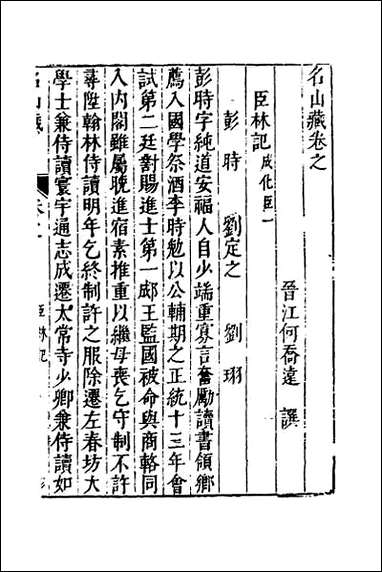 名山藏卷之
晉江何喬遠 撰
臣林記 成化臣一
彭時 劉定之 劉珝
彭時字純道安福人自少端重寡言奮勵讀書領鄉
薦入國學祭酒李時勉以公輔期之正統十三年會
試第二廷對賜進士第一郕王監國被命與商輅同
入内閣雖屬晚進宿素推重以繼母喪乞守制不許
尋陞翰林侍讀明年乞終制許之服除遷左春坊大
學士兼侍讀寰宇通志成遷太常寺少卿兼侍讀如
名山藏
臣林記